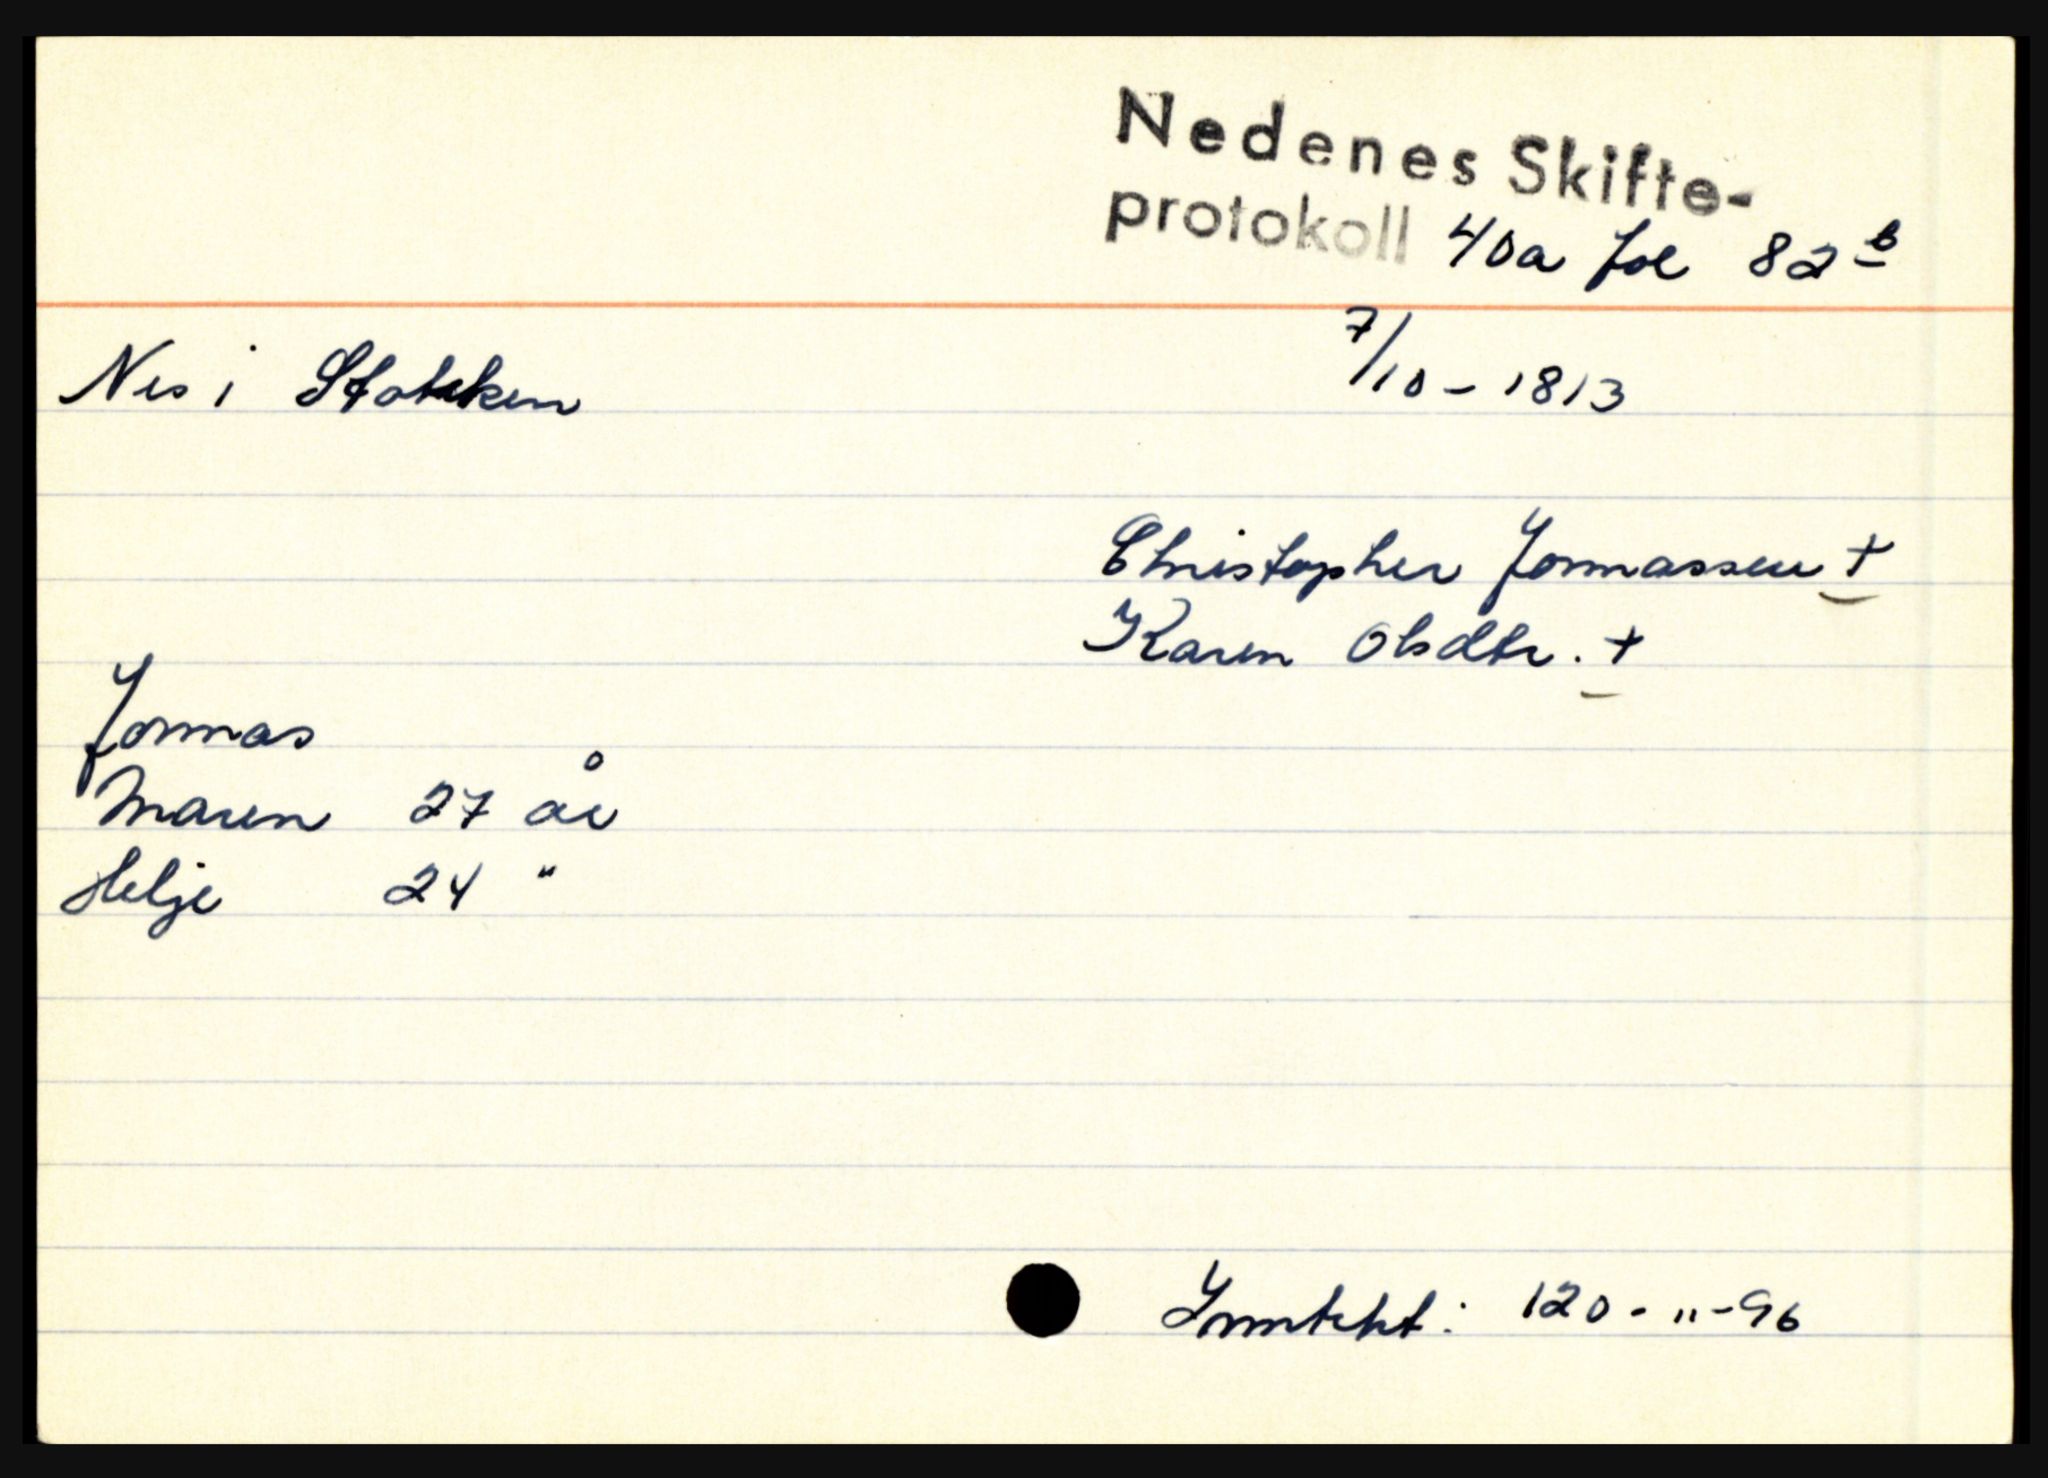 Nedenes Skifte-
protokoll 40a fol 82 b
Nes i Stokken 7/10 - 1813
Christopher Jonnassen +
Karen Olsdtr. +
Jonnas
Maren 27 år
Helje 24 "
Inntekt: 120 - " - 96